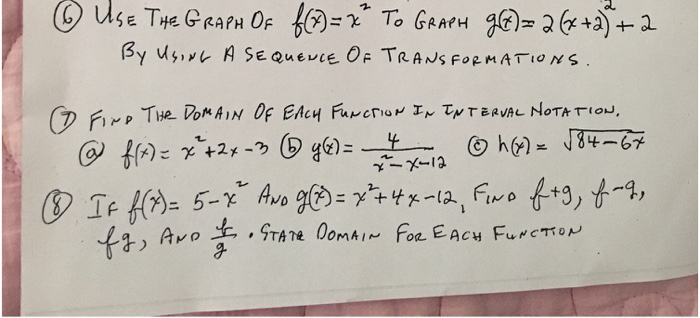 ⑥ USE THE GRAPH OF f(x)=x² TO GRAPH g(x)=2(x+2)²+2
BY USING A SEQUENCE OF TRANSFORMATIONS.
⑦ FIND THE DOMAIN OF EACH FUNCTION IN INTERVAL NOTATION.
ⓐ f(x)=x²+2x-3 ⓑ g(x)=4/(x²-x-12) ⓒ h(x)=√(84-6x)
⑧ IF f(x)=5-x² AND g(x)=x²+4x-12, FIND f+g, f-g,
fg, AND f/g. STATE DOMAIN FOR EACH FUNCTION